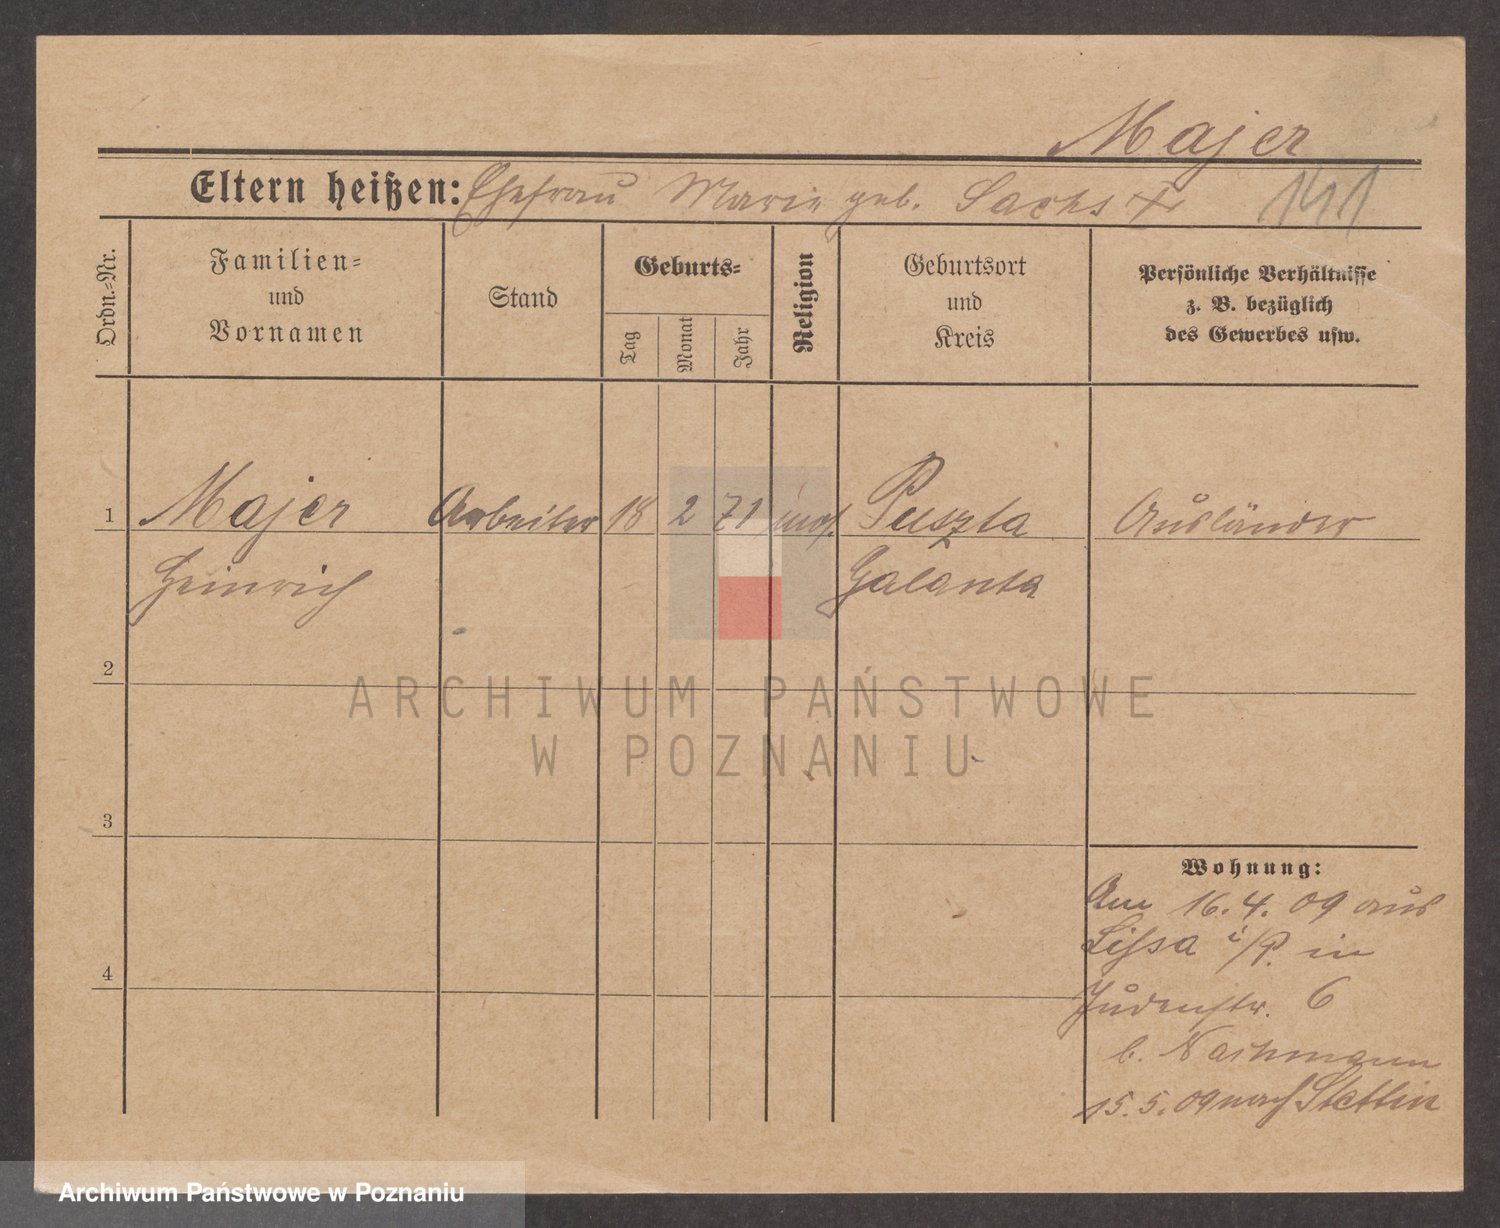 Majer
Eltern heißen: Ehefrau Marie geb. Sachs
141
Ordn.-Nr.
Familien-
und
Vornamen
Stand
Geburts-
Tag
Monat
Jahr
Religion
Geburtsort
und
Kreis
Persönliche Verhältnisse
z. B. bezüglich
des Gewerbes usw.
1 Majer Arbeiter 18 2 71 mos. Puszta Ausländer
Heinrich Galanta
2
ARCHIWUM PAŃSTWOWE
W POZNANIU
3
Wohnung:
Am 16. 4. 09 aus
Lissa i/P. in
4
Judenstr. 6
b. Nachmann
15. 5. 09 nach Stettin
Archiwum Państwowe w Poznaniu